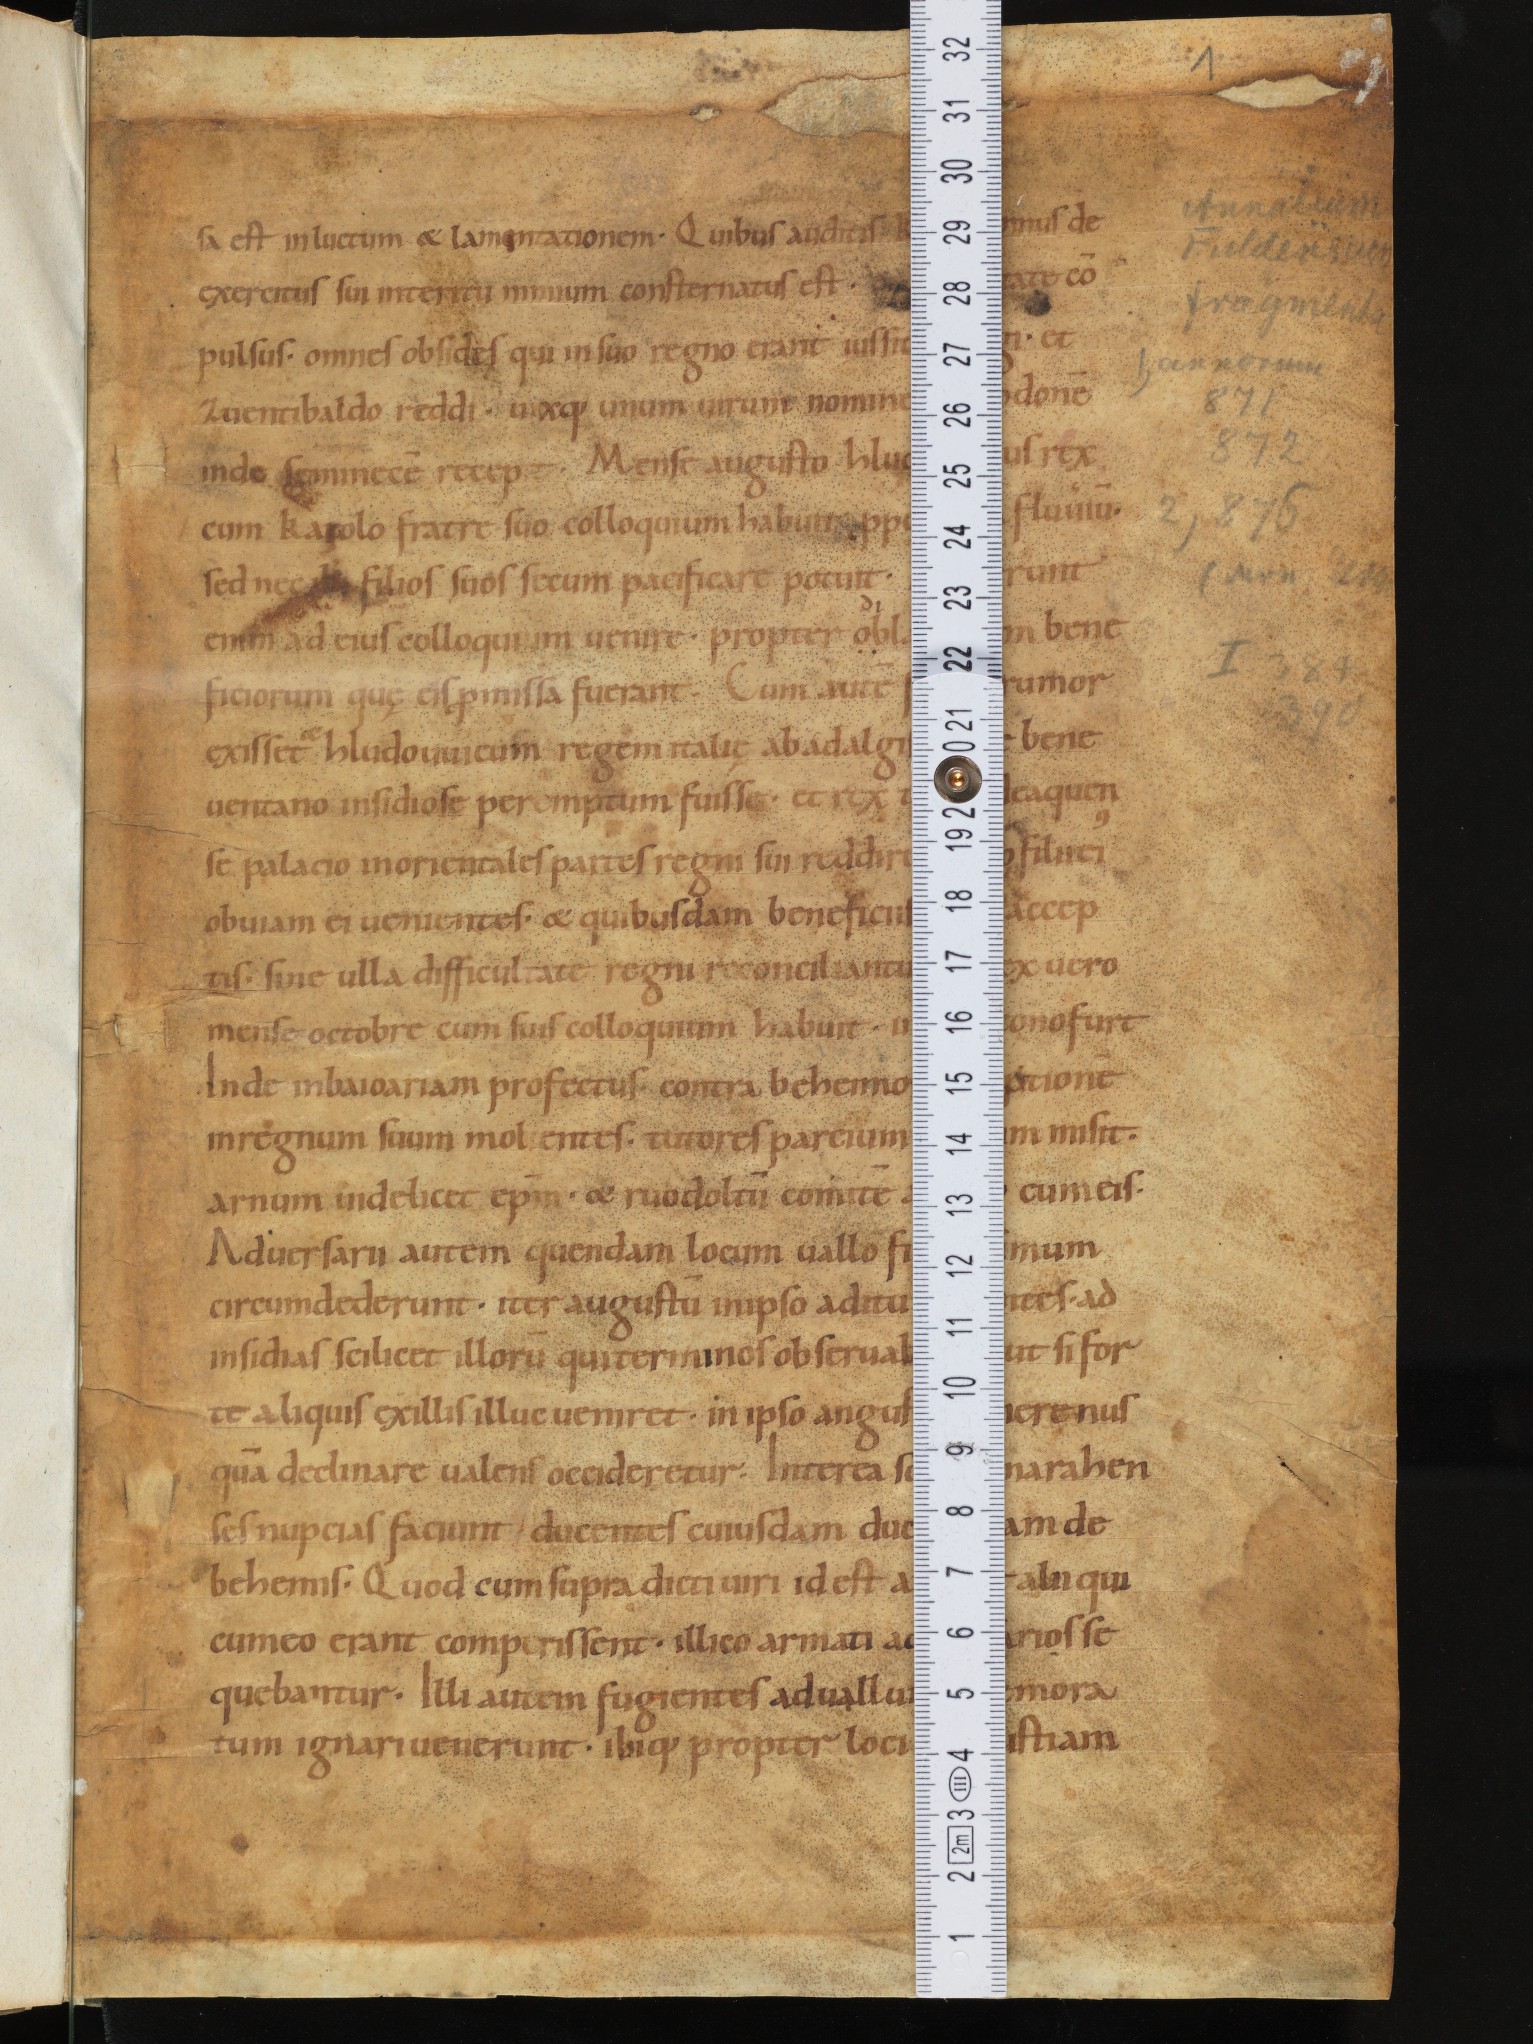 sa est inluctum & lamentationem · Quibus auditis nus de
exercitus sui interitu nimium consternatus est · tate cō
pulsus · omnes obsides qui in suo regno erant iussit et
Zuentibaldo reddi · uixq; unum uirum nomine donē
inde seminecē recep · Mense augusto hlu us rex
cum karolo fratre suo colloquium habuit fluuiū ·
sed nec filios suos secum pacificare potuit · runt
enim ad eius colloquium uenire · propter bene
ficiorum quę eis ꝓmissa fuerant · Cum autē rumor
exisset hludouuicum regem italię ab adalgi bene
uentano insidiose peremptum fuisse · et rex aquen
se palacio inorientales partes regni sui reddire filii ei
obuiam ei uenientes · & quibusdam beneficiis accep
tis · sine ulla difficultate regni reconciliantu ex uero
mense octobre cum suis colloquium habuit · onofurt
Inde inbaioariam profectus · contra behemo ptionē
inregnum suum molientes · tutores parcium m misit ·
arnum uidelicet ep̄m · & ruodoltū comitē cum eis ·
Aduersarii autem quendam locum uallo fi mum
circumdederunt · iter augustū inipso aditu ntes · ad
insidias scilicet illorū qui terminos obseruab ut si for
te aliquis exillis illuc ueniret · in ipso angus nere nus
quā declinare ualens occideretur · Interea sc marahen
ses nupcias faciunt ducentes cuiusdam duc am de
behemis · Quod cum supra dicti uiri id est a alii qui
cum eo erant comperissent · illico armati ad arios se
quebantur · Illi autem fugientes aduallu mora
tum ignari uenerunt · ibiq; propter loci ustiam
1
Annalium
Fuldensium
fragmenta
1, annorum
871
872
2, 876
I 384
390
32
31
30
29
28
27
26
25
24
23
22
21
20
19
18
17
16
15
14
13
12
11
10
9
8
7
6
5
4
III
3
2m
2
1